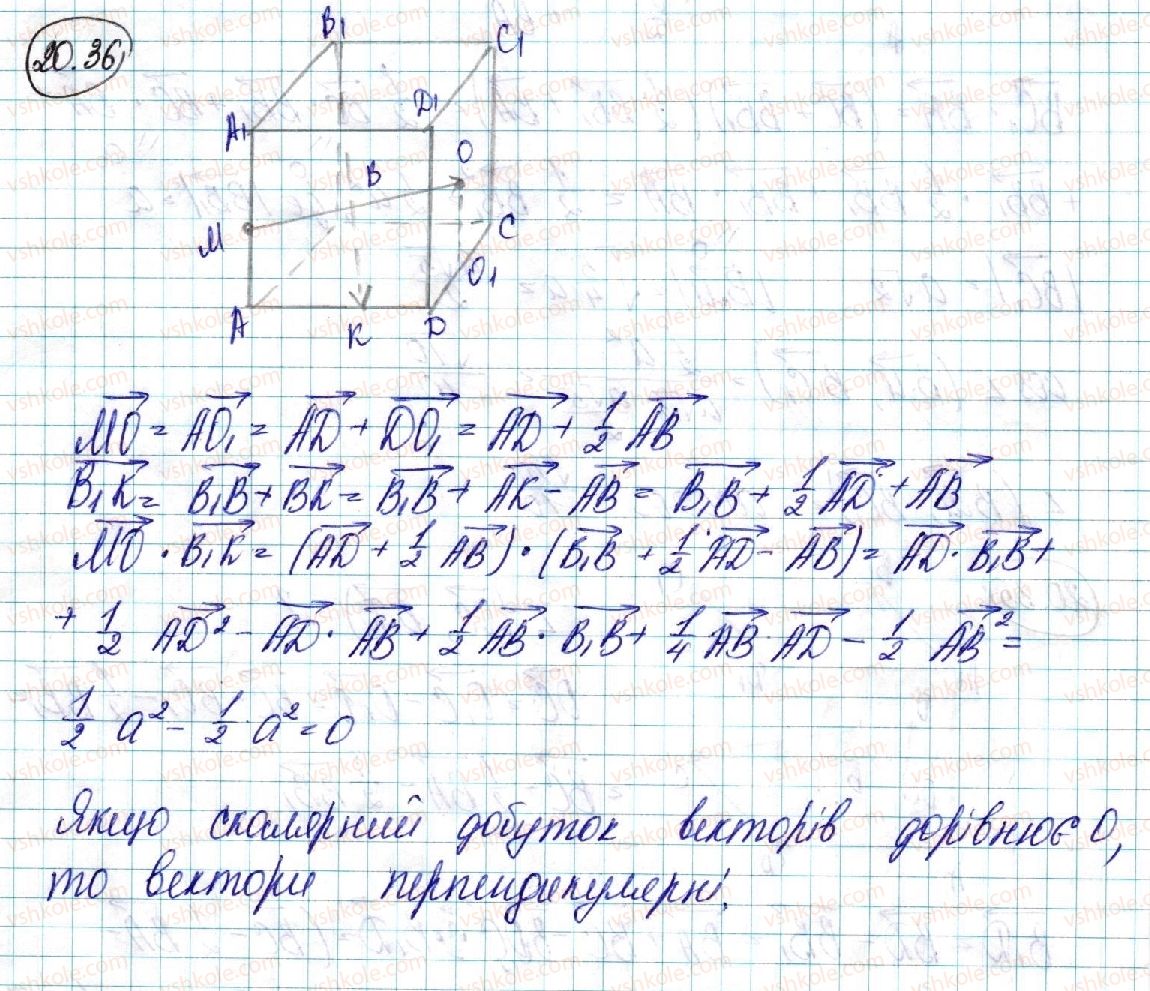 20.36
B₁
C₁
A₁
D₁
O
B
M
C
O₁
A
K
D
MO = AO₁ = AD + DO₁ = AD + 1/2 AB
B₁K = B₁B + BK = B₁B + AK - AB = B₁B + 1/2 AD + AB
MO · B₁K = (AD + 1/2 AB) · (B₁B + 1/2 AD - AB) = AD · B₁B +
+ 1/2 AD² - AD · AB + 1/2 AB · B₁B + 1/4 AB · AD - 1/2 AB² =
1/2 a² - 1/2 a² = 0
Якщо скалярний добуток векторів дорівнює 0,
то вектори перпендикулярні.
vshkole.com